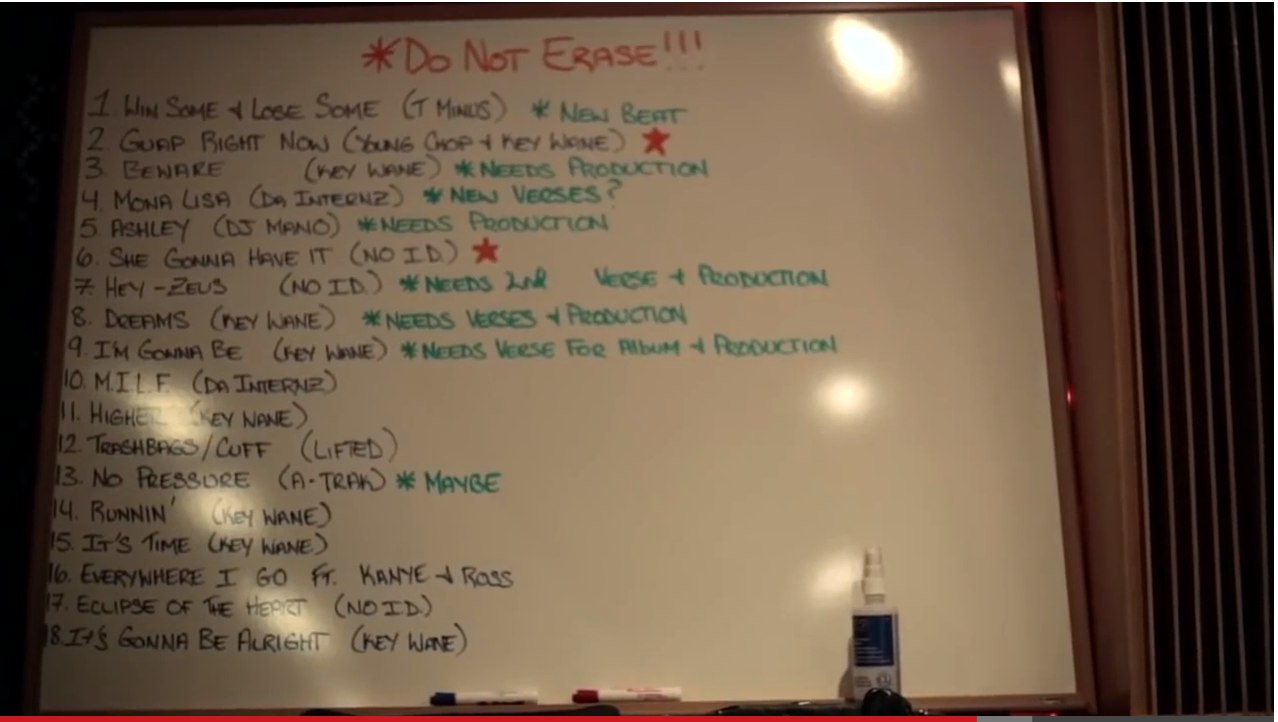 *DO NOT ERASE!!!
1. WIN SOME & LOSE SOME (T MINUS) * NEW BEAT
2. GUAP RIGHT NOW (YOUNG CHOP & KEY WANE) ★
3. BEWARE (KEY WANE) *NEEDS PRODUCTION
4. MONA LISA (DA INTERNZ) * NEW VERSES?
5. ASHLEY (DJ MANO) *NEEDS PRODUCTION
6. SHE GONNA HAVE IT (NO I.D.) ★
7. HEY-ZEUS (NO I.D.) *NEEDS 2nd VERSE & PRODUCTION
8. DREAMS (KEY WANE) *NEEDS VERSES & PRODUCTION
9. I'M GONNA BE (KEY WANE) *NEEDS VERSE FOR ALBUM & PRODUCTION
10. M.I.L.F. (DA INTERNZ)
11. HIGHER (KEY WANE)
12. TRASHBAGS/CUFF (LIFTED)
13. NO PRESSURE (A-TRAK) * MAYBE
14. RUNNIN' (KEY WANE)
15. IT'S TIME (KEY WANE)
16. EVERYWHERE I GO FT. KANYE & ROSS
17. ECLIPSE OF THE HEART (NO I.D.)
18. It's GONNA BE ALRIGHT (KEY WANE)